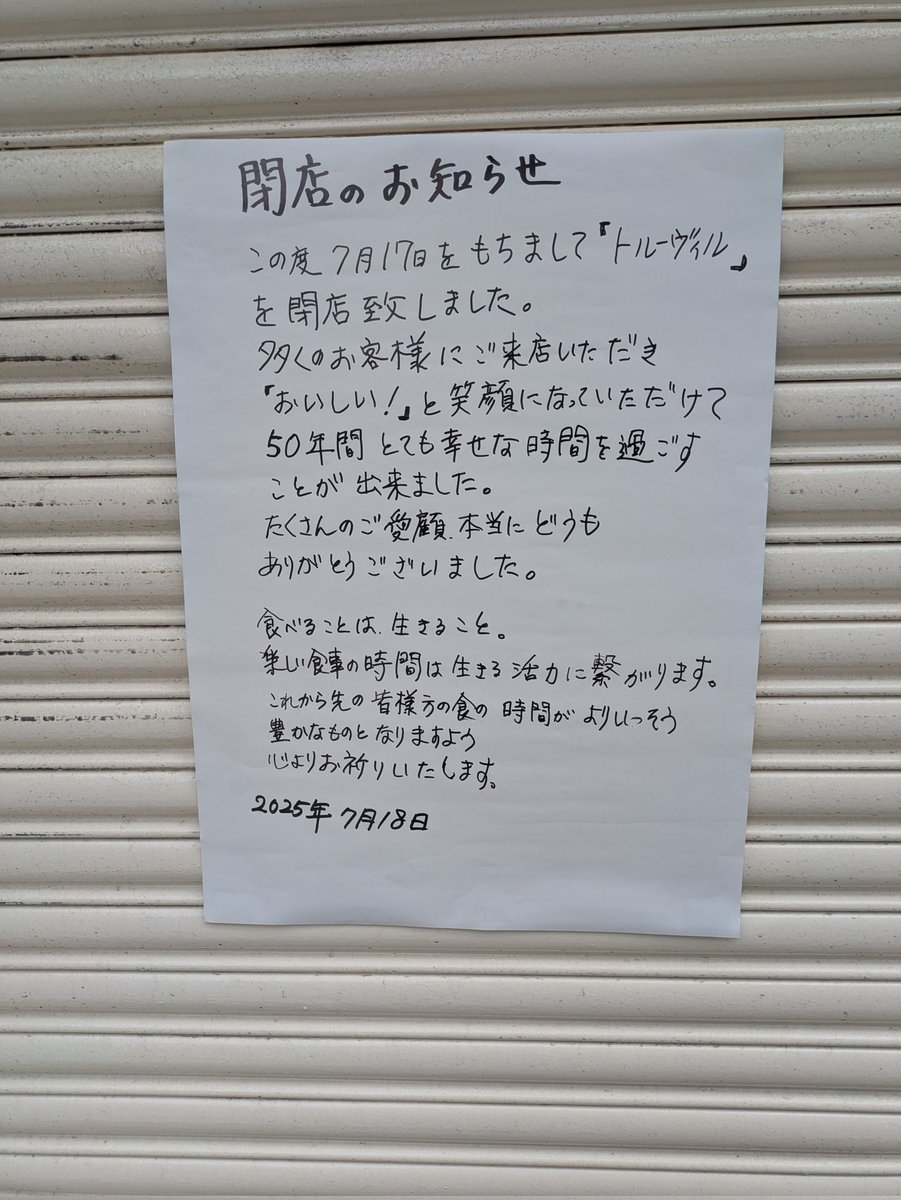 閉店のお知らせ
この度7月17日をもちまして『トルーヴィル』
を閉店致しました。
多くのお客様にご来店いただき
『おいしい!』と笑顔になっていただけて
50年間とても幸せな時間を過ごす
ことが出来ました。
たくさんのご愛顧、本当にどうも
ありがとうございました。
食べることは、生きること。
楽しい食事の時間は生きる活力に繋がります。
これから先の皆様方の食の時間がよりいっそう
豊かなものとなりますよう
心よりお祈りいたします。
2025年7月18日